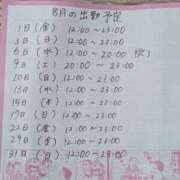 8月の出勤予定
1日(金) 12:00~23:00
3日(日) 12:00~23:00
6日(水) 12:00~20:00
9日(土) 20:00~23:00
10日(日) 12:00~23:00
13日(水) 12:00~23:00
14日(木) 12:00~23:00
17日(日) 12:00~23:00
22日(金) 12:00~23:00
29日(金) 12:00~23:00
31日(日) 12:00~23:00